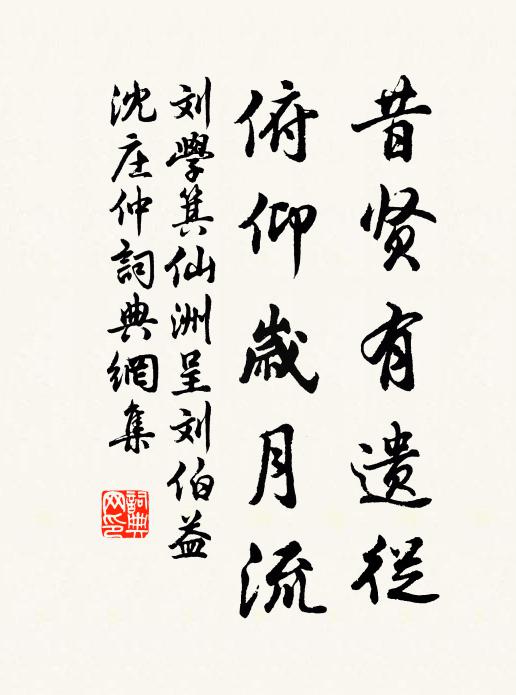 昔贤有遗从
俯仰歲月流
刘學箕仙洲呈刘伯益
沈庄仲詞典網集
詞典网印